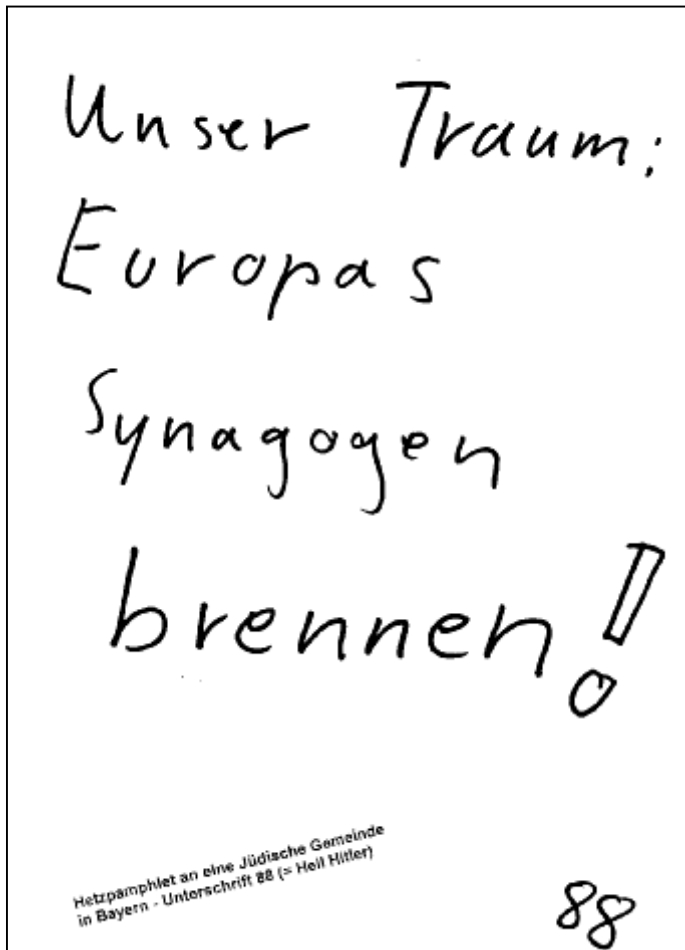 Unser Traum:
Europas
Synagogen
brennen!
Hetzpamphlet an eine Jüdische Gemeinde
in Bayern - Unterschrift 88 (= Heil Hitler)
88